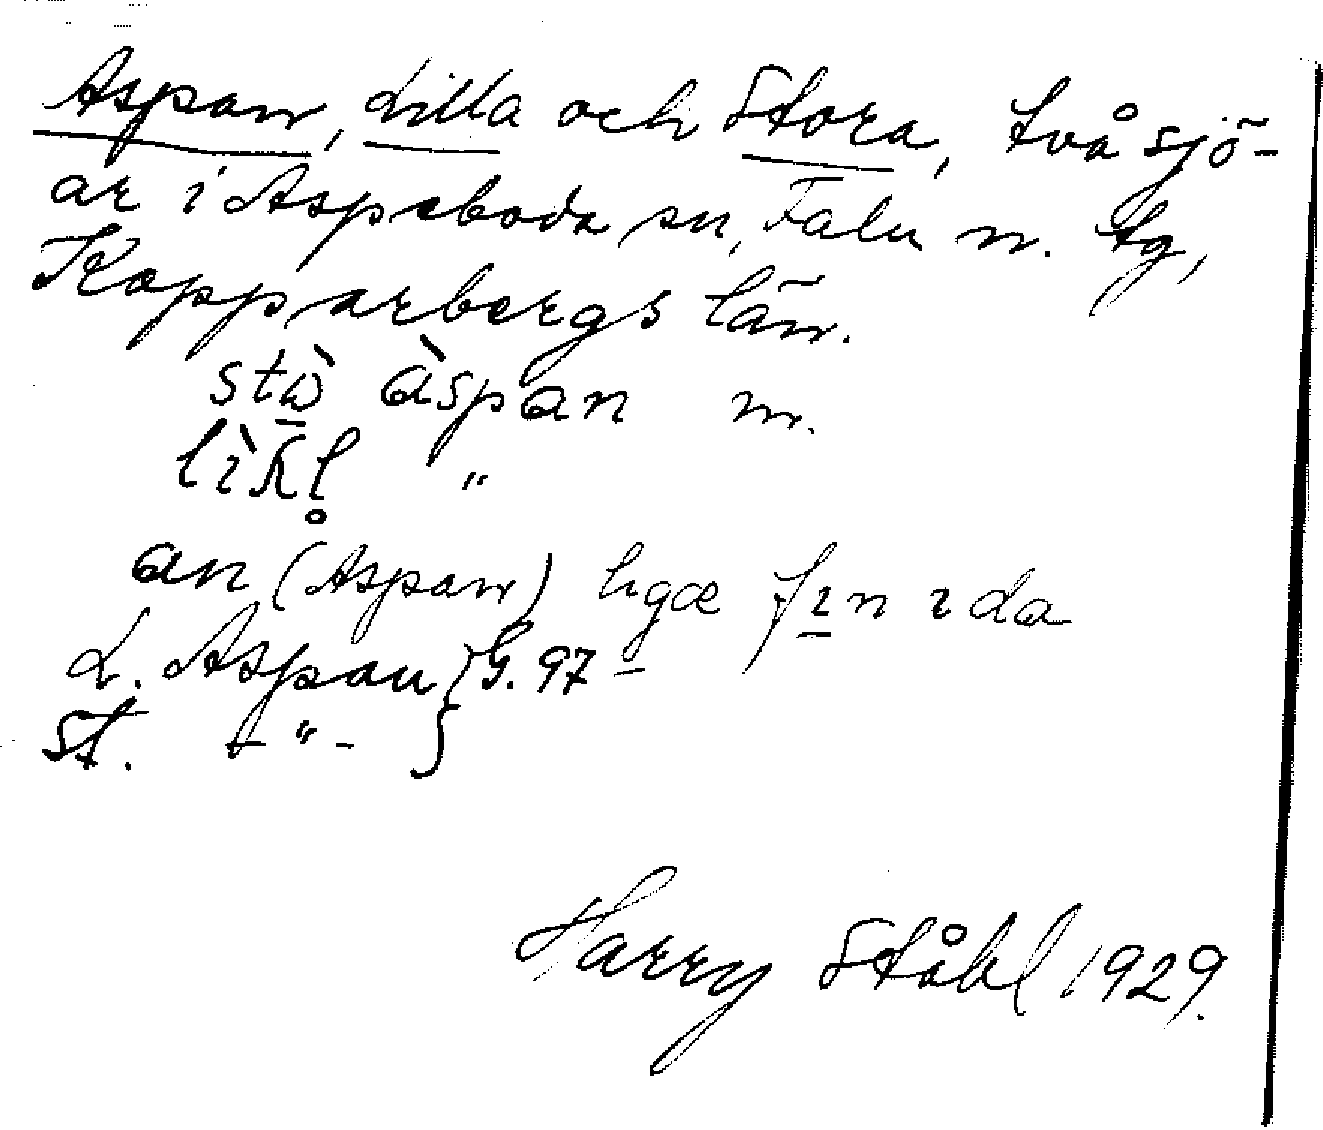 Aspan, Lilla och Stora, två sjö-
ar i Aspeboda sn, Falu n. tg,
Kopparbergs län.
stὼ àspan m.
lìkl̥ "
an (Aspan) ligæ fın ı da
L. Aspan } G. 97
St. - " - }
Harry Ståhl 1929.